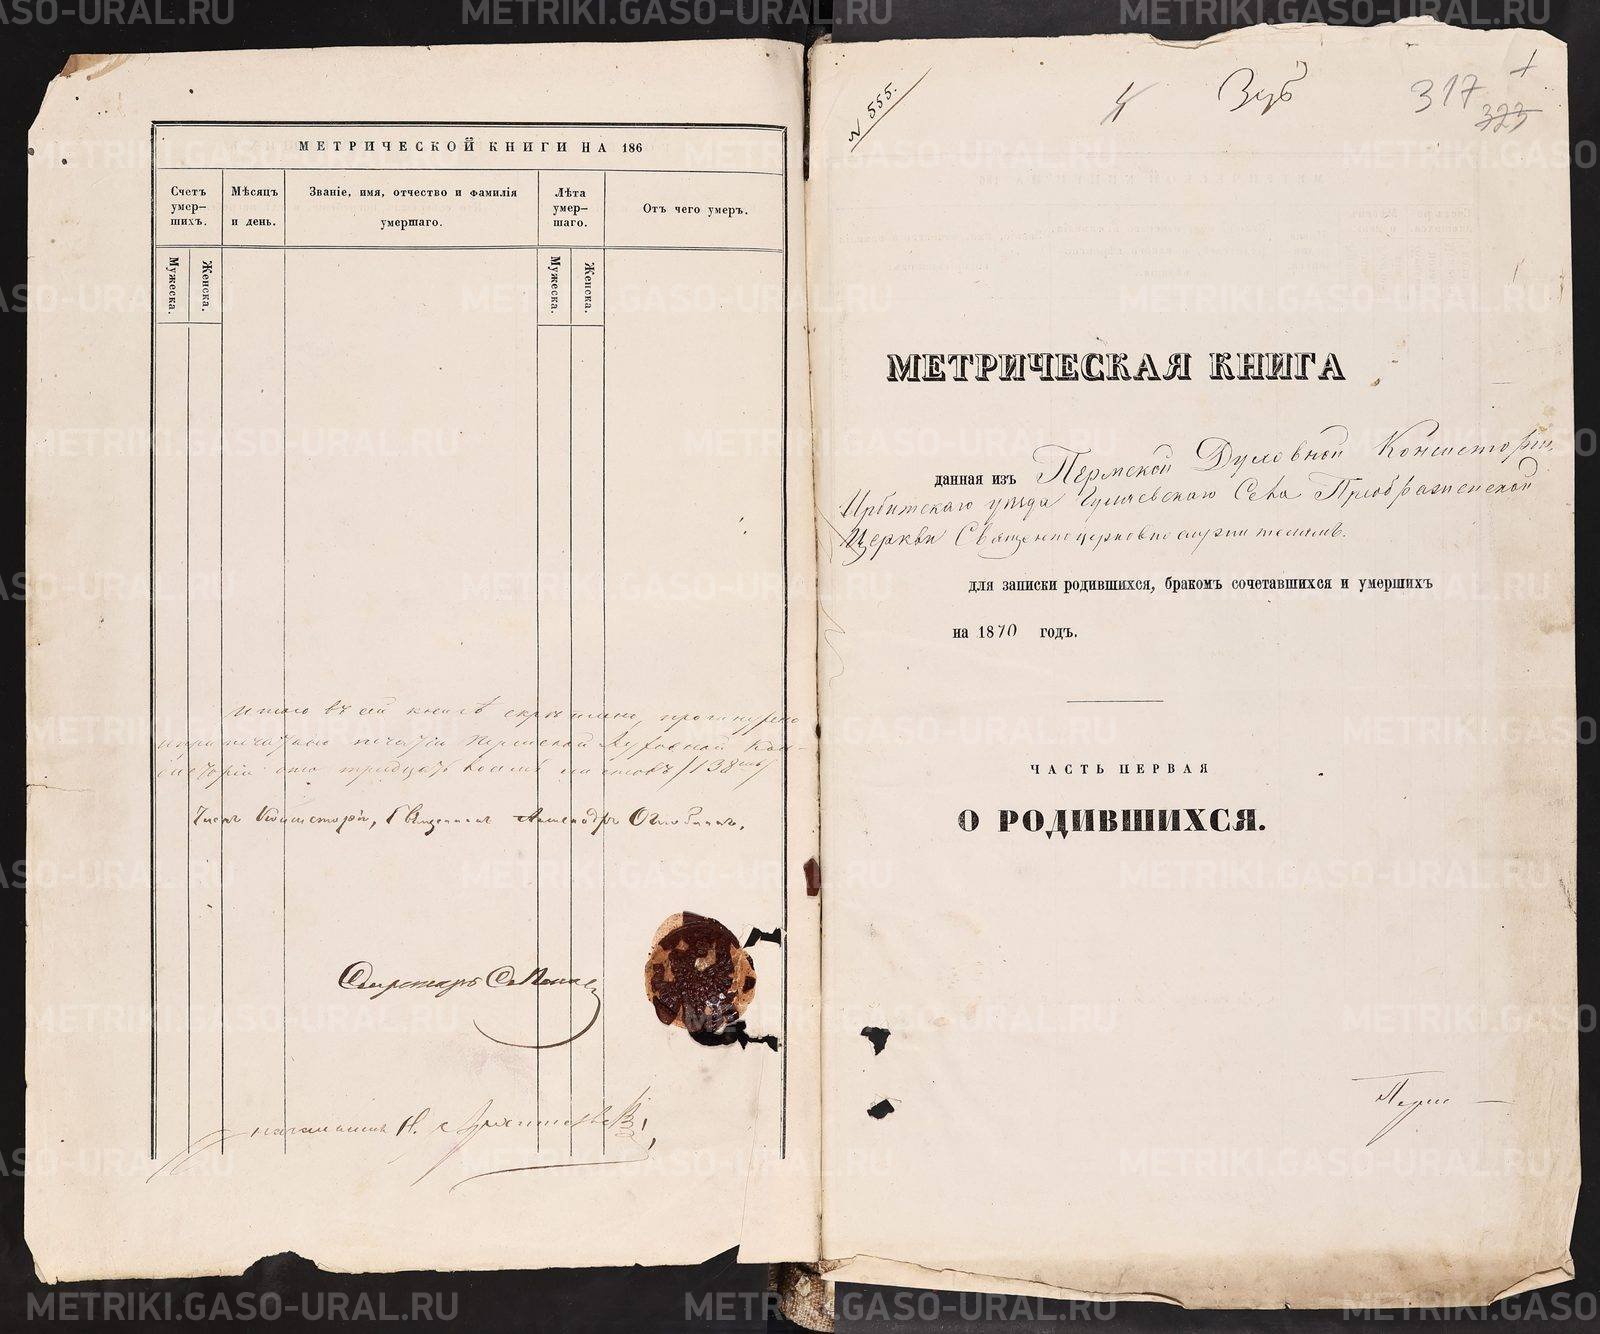 МЕТРИЧЕСКОЙ КНИГИ НА 186
Счетъ умер-шихъ.
Мѣсяцъ и день.
Званіе, имя, отчество и фамилія умершаго.
Лѣта умер-шаго.
Отъ чего умеръ.
Мужеска.
Женска.
Мужеска.
Женска.
Итого въ сей книгѣ скрѣплено, прошнуровано
и припечатано печатью Пермской Духовной Кон-
систоріи сто тридцать восемь листовъ /138
Членъ Консисторіи, Священникъ Александръ
Секретарь
№ 555.
317
323
МЕТРИЧЕСКАЯ КНИГА
данная изъ Пермской Духовной Консисторіи,
Ирбитскаго уѣзда Села Преображенской
Церкви Священноцерковнослужителямъ.
для записки родившихся, бракомъ сочетавшихся и умершихъ
на 1870 годъ.
ЧАСТЬ ПЕРВАЯ
О РОДИВШИХСЯ.
METRIKI.GASO-URAL.RU